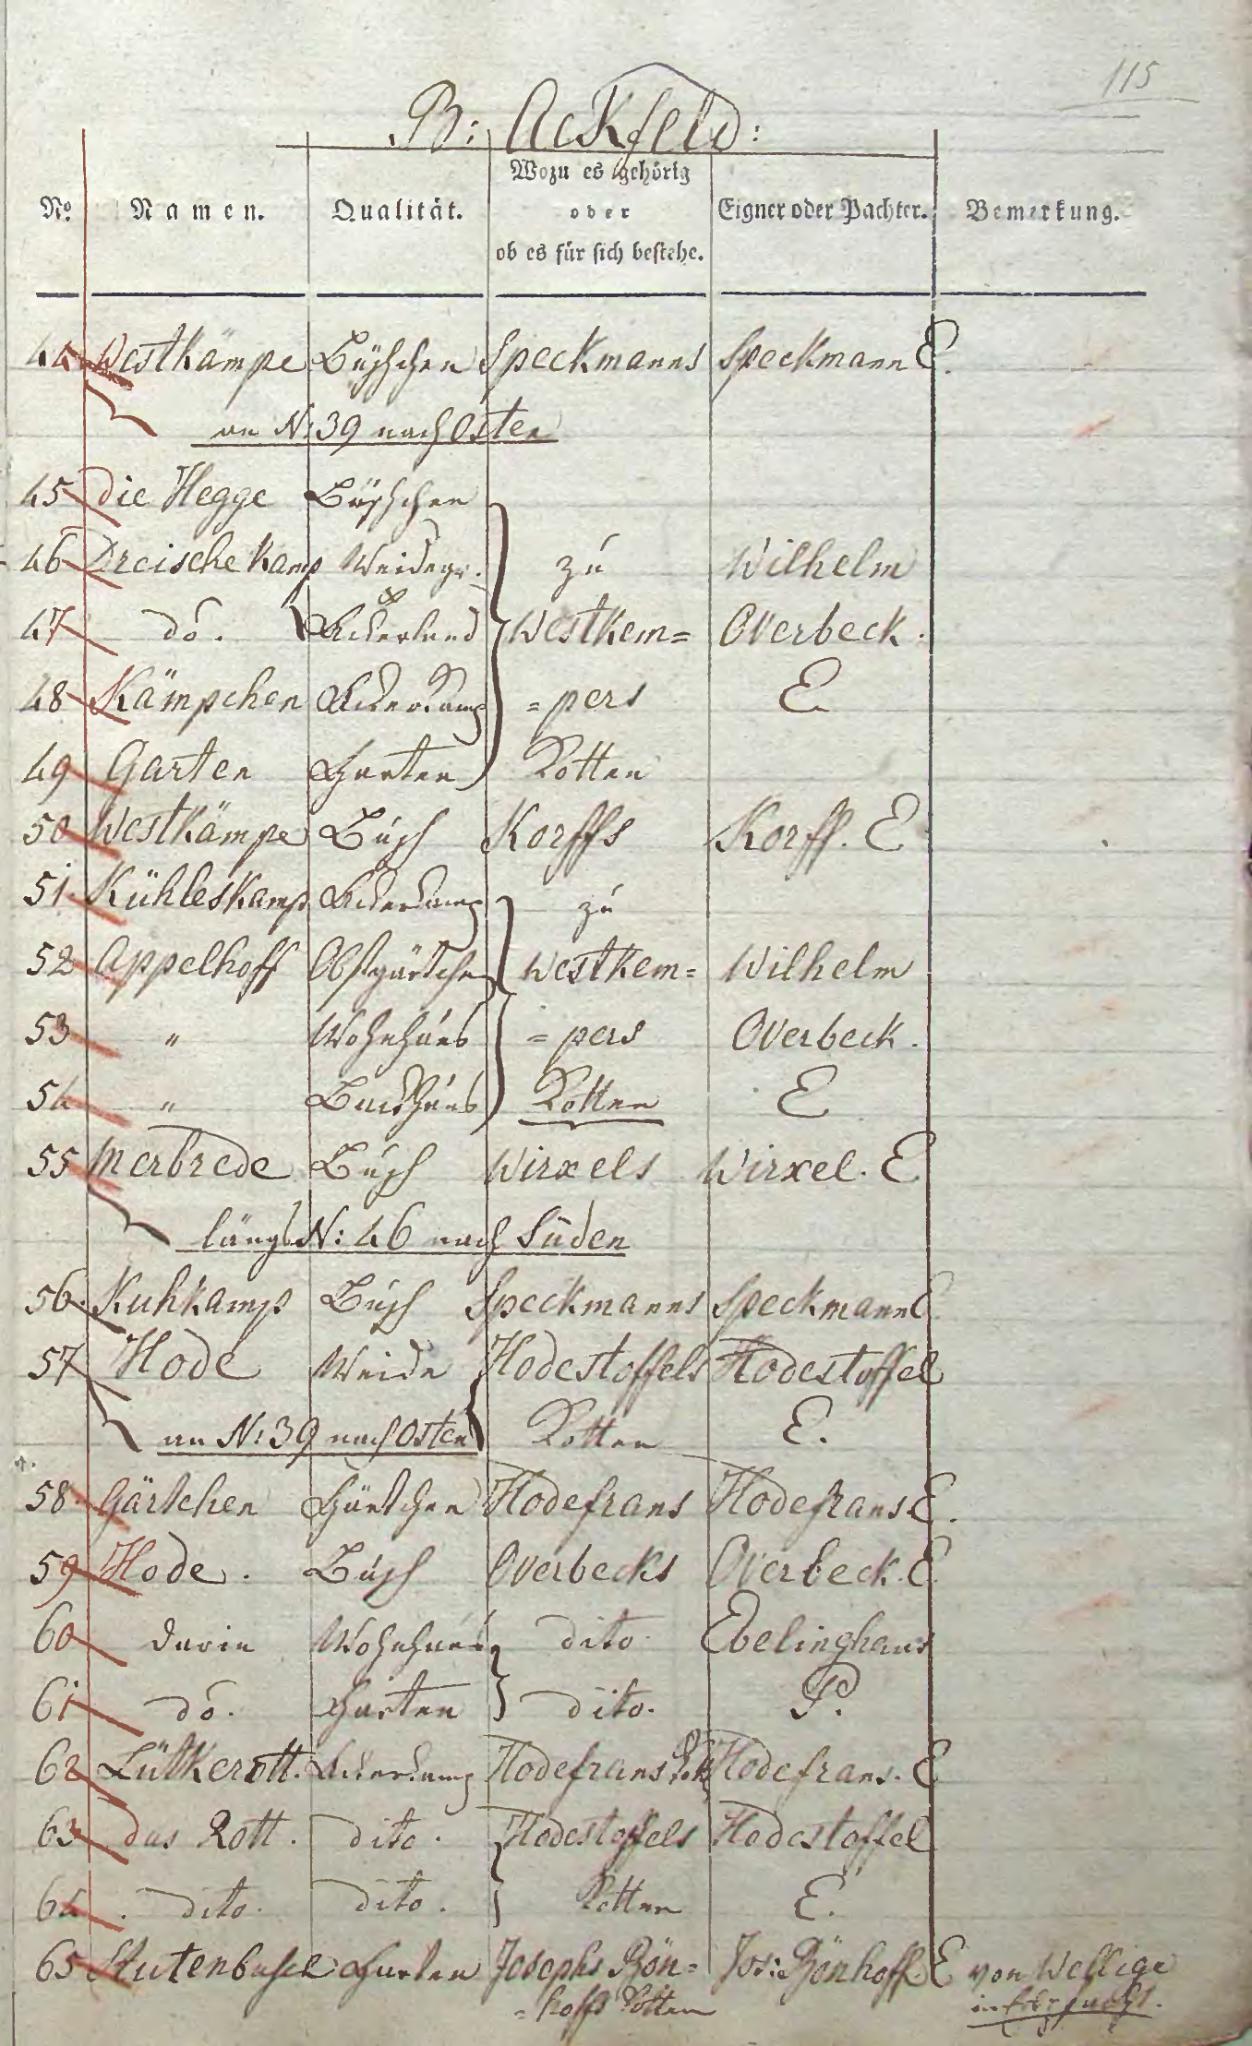 115
B: Ackfeld:
No. Namen. Qualität. Wozu es gehörig oder ob es für sich bestehe. Eigner oder Pachter. Bemerkung.
44 Westkämpe Büschchen Speckmanns Speckmann E.
an N: 39 nach Osten
45 die Hegge Büschchen
46 Dreische Kamp Weidegr. zu Wilhelm
47 do. & Ackerland Westkem= Overbeck.
48 Kämpchen Ackerkamp =pers E
49 Garten Garten Kotten
50 Westkämpe Busch Korffs Korff. E
51. Kühleskamp Ackerkamp zu
52 Appelhoff Obstgärtchen Westkem= Wilhelm
53 " Wohnhaus =pers Overbeck.
54 " Backhaus Kotten E
55 Merbrede Busch Wirxels Wirxel. E
längs N: 46 nach Süden
56. Kuhkamp Busch Speckmanns Speckmann E.
57 Hode Weide Hodestoffels Hodestoffel
an N: 39 nach Osten Kotten E.
58 Gärtchen Gärtchen Hodefrans Hodefrans E.
59 Hode. Busch Overbecks Overbeck. E.
60 darin Wohnhaus dito Ebelinghaus
61 do. Garten dito. P.
62 Lütkerott. Ackerkamp Hodefrans Kott Hodefrans. E
63 das Rott. dito. Hodestoffels Hodestoffel
64 dito. dito. Kotten E.
65 Stutenbusch Garten Josephs Bön= Jos: Bönhoff. E von Wellige
=hoffs Kotten in Erbpacht.